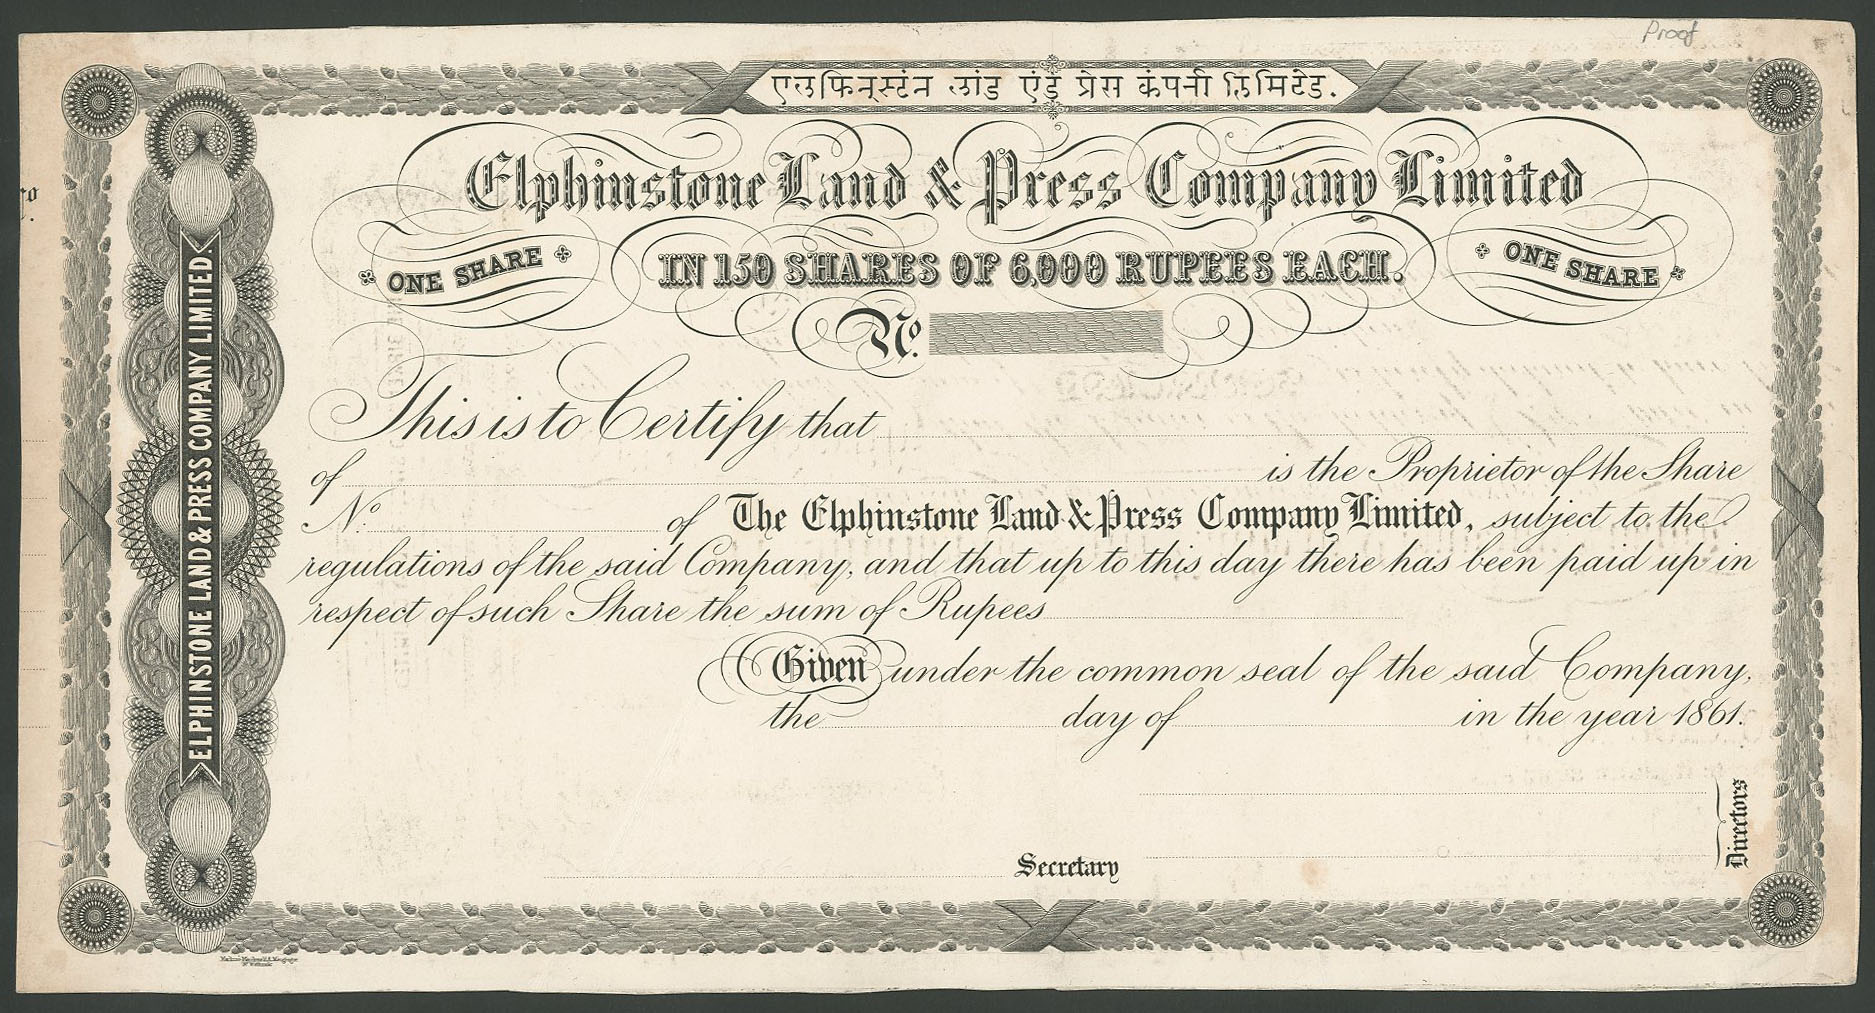 Proof
एलफिन्स्टंन लांड एंड प्रेस कंपनी लिमिटेड.
Elphinstone Land & Press Company Limited
ONE SHARE
IN 150 SHARES OF 6,000 RUPEES EACH.
ONE SHARE
No.
This is to Certify that
of is the Proprietor of the Share
No. of The Elphinstone Land & Press Company Limited, subject to the
regulations of the said Company, and that up to this day there has been paid up in
respect of such Share the sum of Rupees
Given under the common seal of the said Company,
the day of in the year 1861.
Directors
Secretary
ELPHINSTONE LAND & PRESS COMPANY LIMITED.